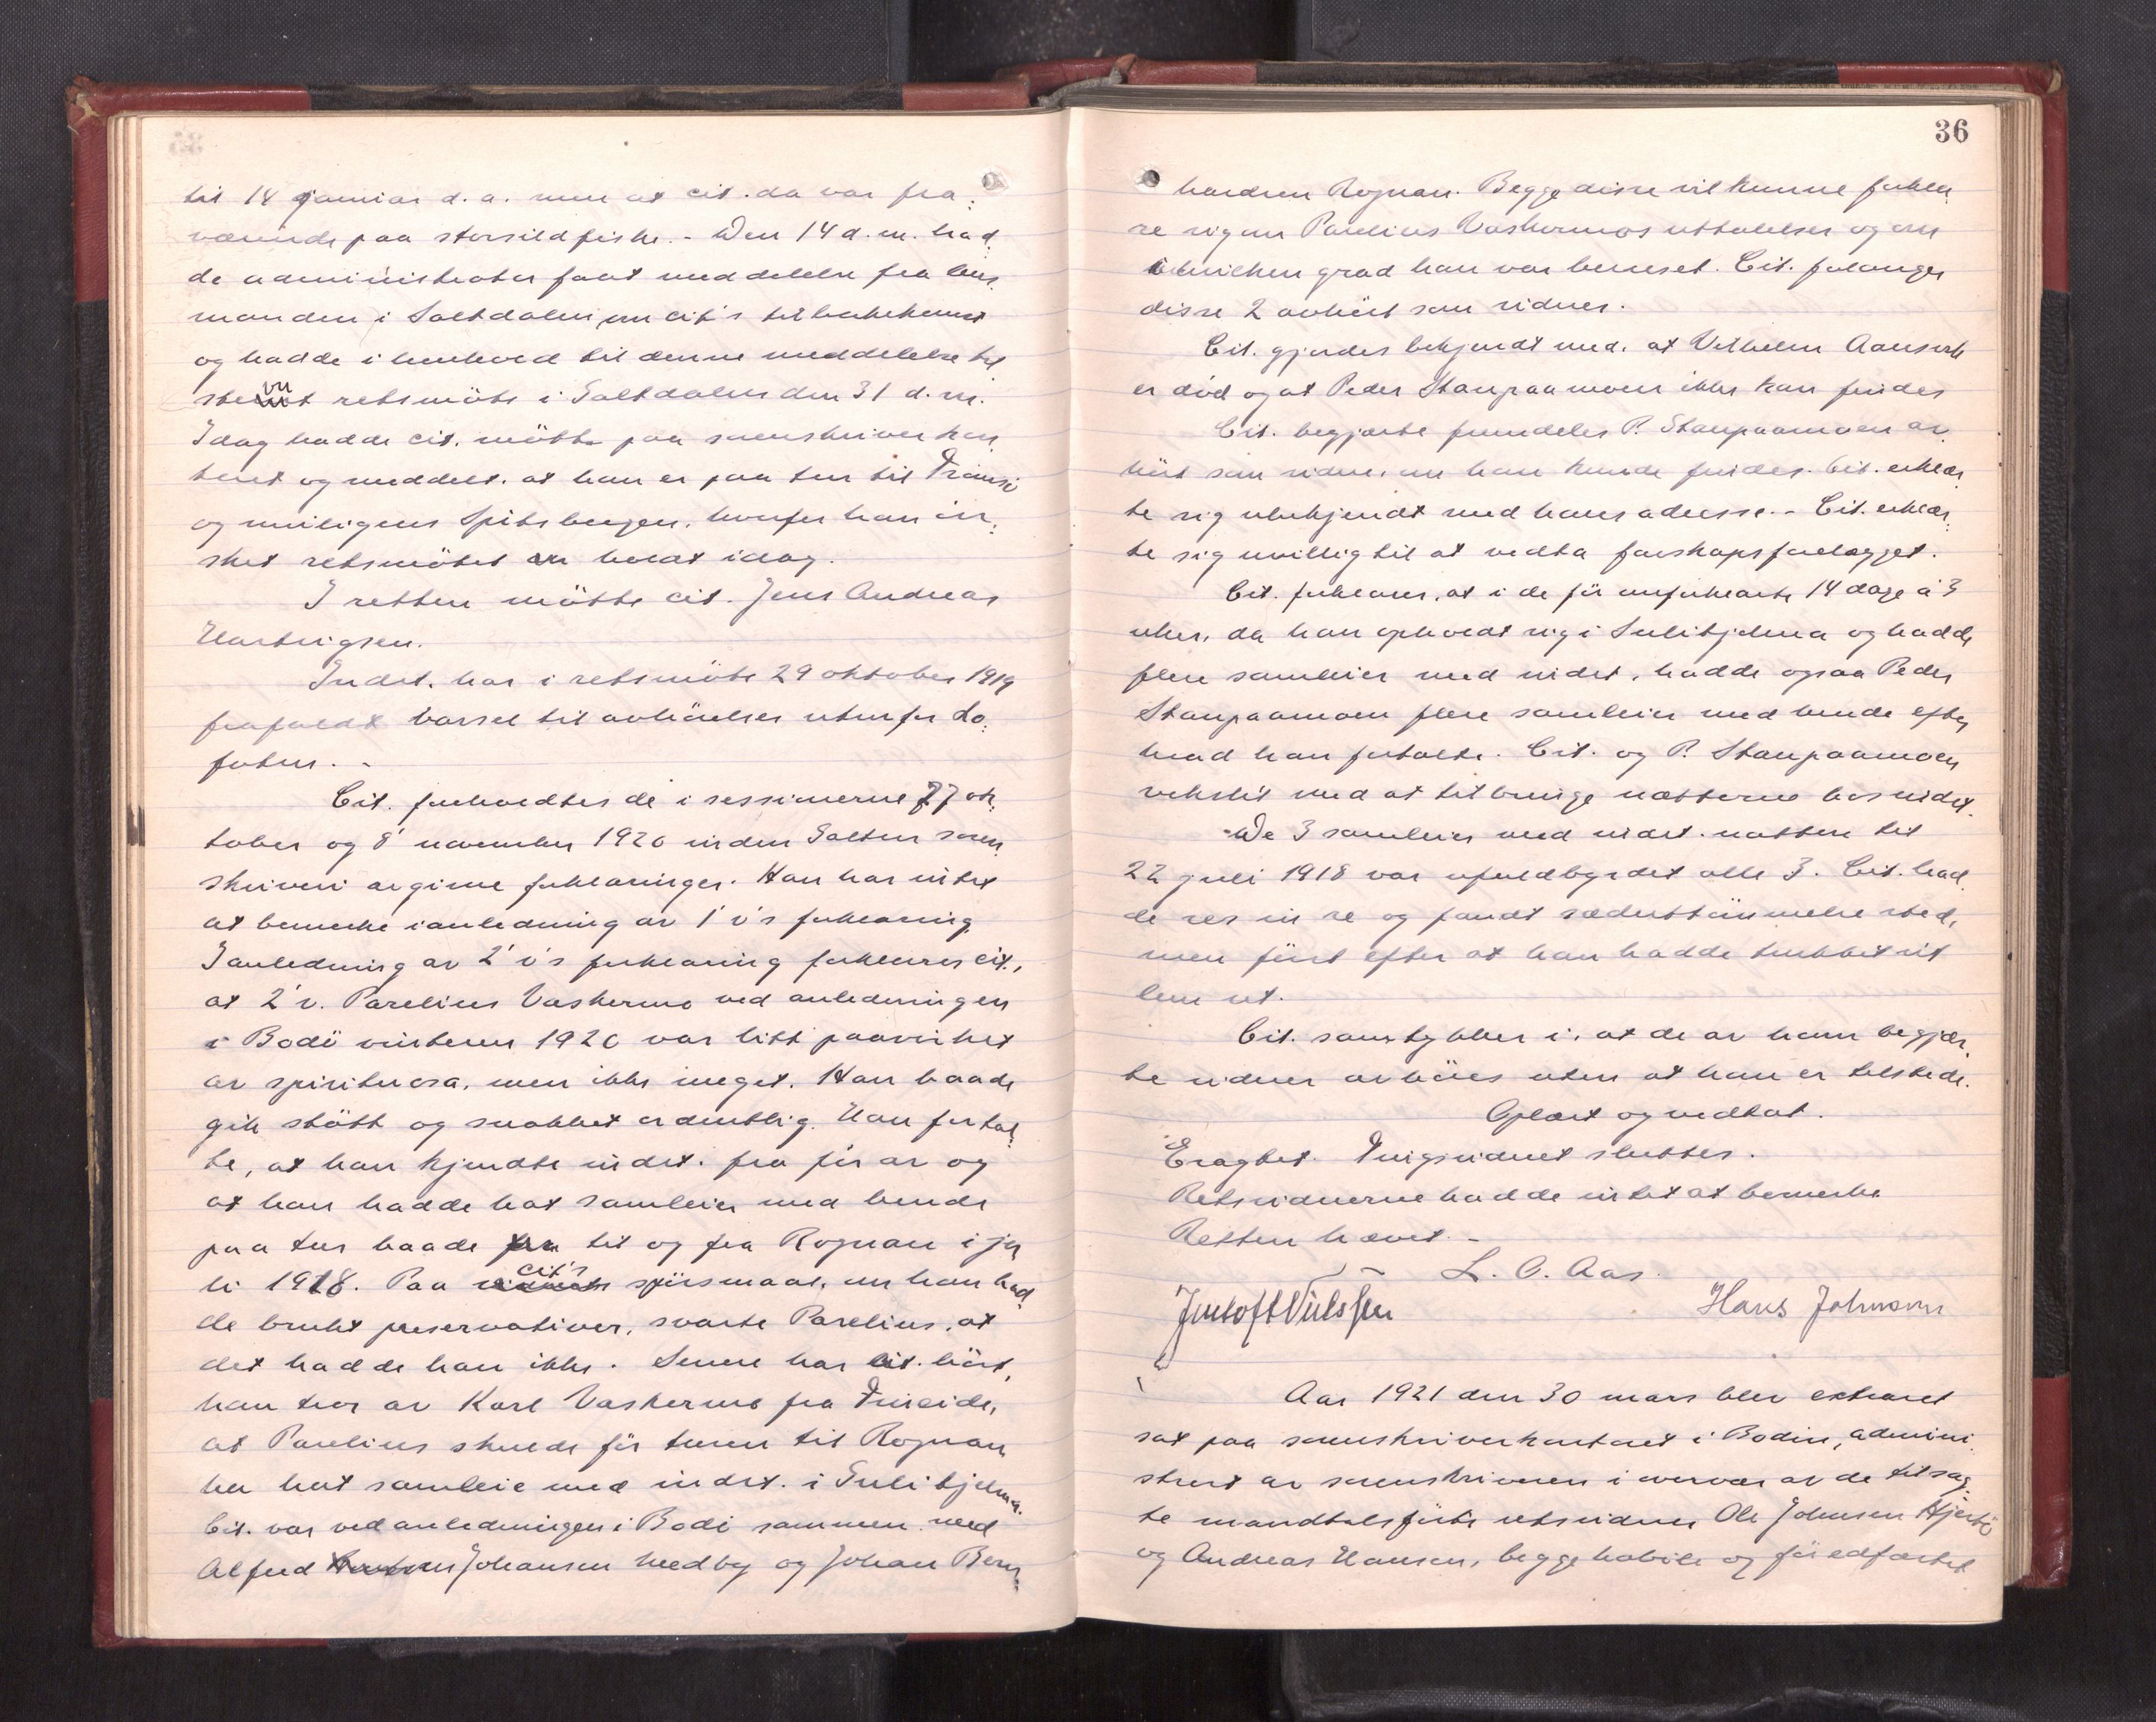 til 14 januar d. a. men at cit. da var fra-
værende paa storsildfiske. - Den 14 d. m. had-
de administrator faat meddelelse fra lens-
manden i Saltdalen om cit's tilbakekomst
og hadde i henhold til denne meddelelse be-
stemt retsmöte i Saltdalen den 31 d. m.
Idag hadde cit. mött paa sorenskriverkon-
toret og meddelt. at han er paa tur til Tromsö
og muligens Spitsbergen, hvorfor han ön-
sket retsmötet holdt idag.
I retten mötte cit. Jens Andreas
Hartvigsen.
Indst. har i retsmöte 29 oktober 1919
frafaldt varsel til avhörelser utenfor Lo-
foten. -
Cit. foreholdtes de i sessionerne 27 ok-
tober og 8' november 1920 inden Salten soren-
skriveri avgivne forklaringer. Han har intet
at bemerke i anledning av 1' v's forklaring.
I anledning av 2' v's forklaring forklarer cit.,
at 2' v. Parelius Vaskermo ved anledningen
i Bodö vinteren 1920 var litt paavirket
av spirituosa, men ikke meget. Han baade
gik stött og snakket ordentlig. Han fortal-
te, at han kjendte indst. fra för av og
at han hadde hat samleier med hende
paa tur baade til og fra Rognan i ju-
li 1918. Paa cit's spörsmaal, om han had-
de brukt preservativer, svarte Parelius, at
det hadde han ikke. Senere har cit. hört,
han tror av Karl Vaskermo fra Fineide,
at Parelius skulde för turen til Rognan
ha hat samleie med indst. i Sulitjelma.
Cit. var ved anledningen i Bodö sammen med
Alfred Johansen Medby og Johan Bern-
36
hardsen Rognan. Begge disse vil kunne forkla-
re sig om Parelius Vaskermos uttalelser og om
i hvilken grad han var beruset. Cit. forlanger
disse 2 avhört som vidner.
Cit. gjordes bekjendt med. at Vilhelm
er död og at Peder Staupaamoen ikke kan findes
Cit. begjærte fremdeles P. Staupaamoen av-
hört som vidne, om han kunde findes. Cit. erklær-
te sig ubekjendt med hans adresse. - Cit. erklær-
te sig uvillig til at vedta farskapsforelegget.
Cit. forklarer, at i de för omforklarte 14 dage à 3
uker, da han opholdt sig i Sulitjelma og hadde
flere samleier med indst., hadde ogsaa Peder
Staupaamoen flere samleier med hende efter
hvad han fortalte. Cit. og P. Staupaamoen
vekslet med at tilbringe nætterne hos indst.
De 3 samleier med indst. natten til
22 juli 1918 var ufuldbyrdet alle 3. Cit. had-
de res in re og fandt sæduttömmelse sted,
men först efter at han hadde trukket sit
lem ut.
Cit. samtykker i. at de av ham begjær-
te vidner avhöres uten at han er tilstede.
Oplæst og vedtat.
Eragtet. Tingsvidnet sluttes.
Retsvidnerne hadde intet at bemerke
Retten hævet. -
L. O. Aas.
Hans Johnsen
Aar 1921 den 30 mars blev extraret
sat paa sorenskriverkontoret i Bodin, admini-
strert av sorenskriveren i overvær av de tilsag-
te mandtalsförte retsvidner Ole Johnsen
og Andreas Hansen, begge habile og för edfæstet